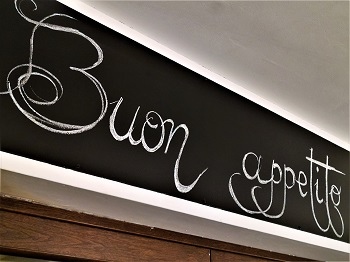 Buon appetito